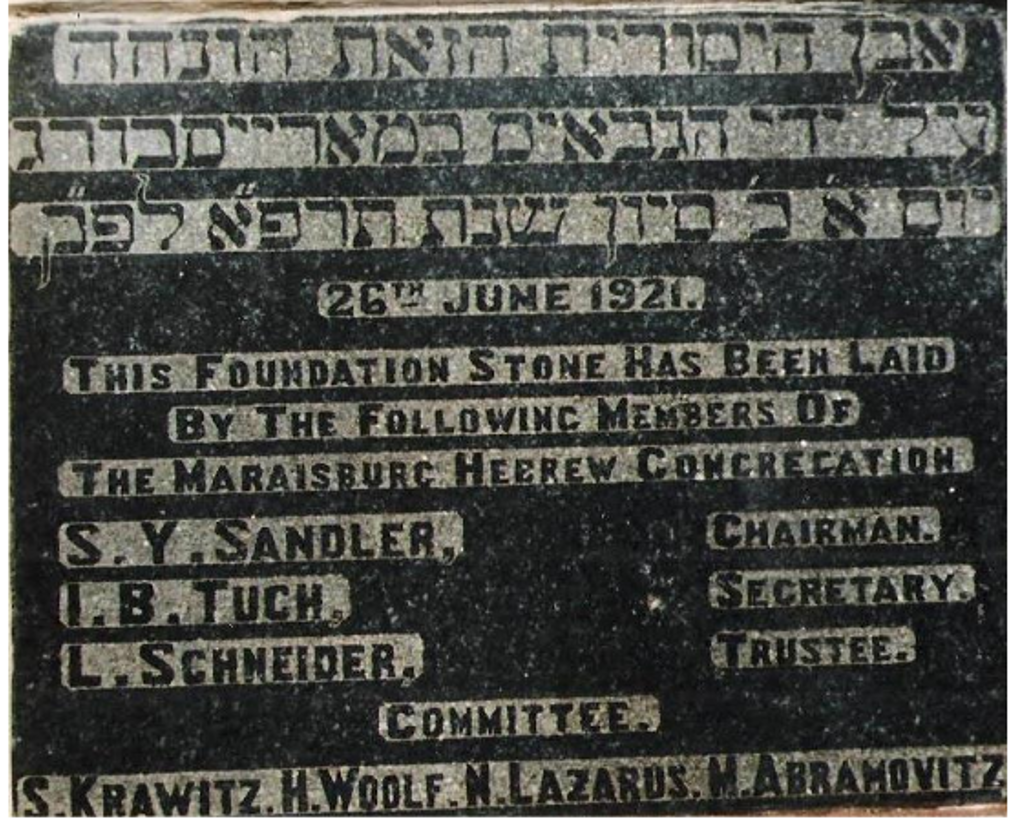 אבן היסודית הזאת הונחה
על ידי הגבאים במארייסבורג
יום א׳ כ׳ סיון שנת תרפ״א לפ״ק
26TH JUNE 1921.
THIS FOUNDATION STONE HAS BEEN LAID
BY THE FOLLOWING MEMBERS OF
THE MARAISBURG HEBREW CONGREGATION
S. Y. SANDLER, CHAIRMAN.
I. B. TUCH, SECRETARY.
L. SCHNEIDER, TRUSTEE.
COMMITTEE.
S. KRAWITZ. H. WOOLF. N. LAZARUS. M. ABRAMOVITZ